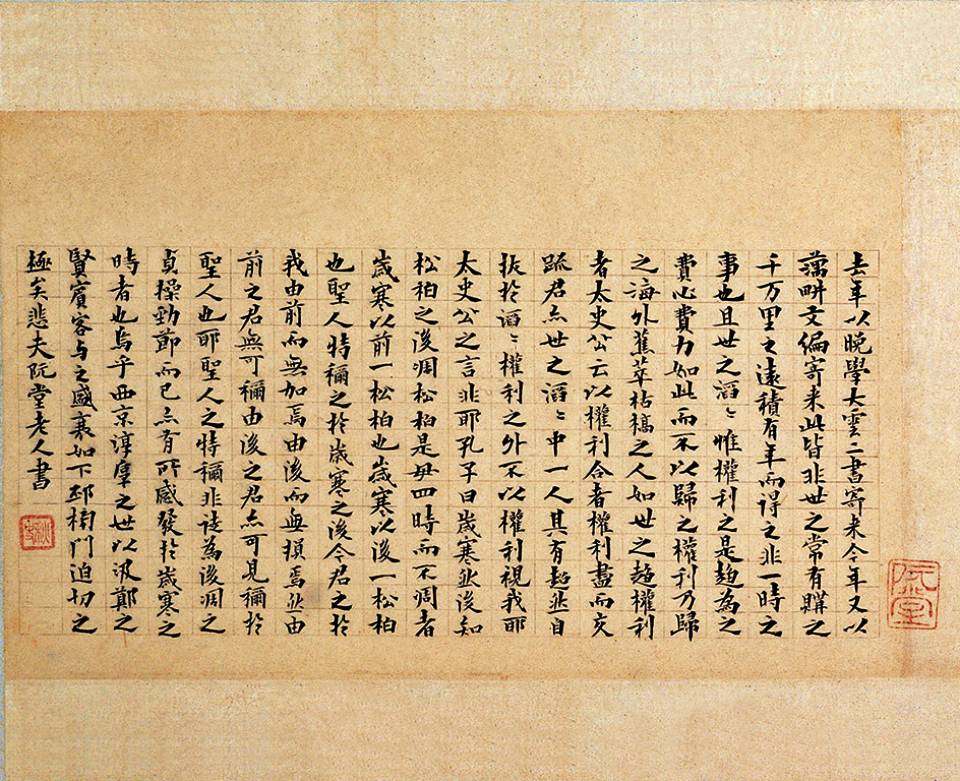 阮堂
去年以晚學大雲二書寄來今年又以
藕畊文編寄來此皆非世之常有購之
千万里之遠積有年而得之非一時之
事也且世之滔〻惟權利之是趨為之
費心費力如此而不以歸之權利乃歸
之海外蕉萃枯稿之人如世之趨權利
者太史公云以權利合者權利盡而交
疏君亦世之滔〻中一人其有超然自
拔於滔〻權利之外不以權利視我耶
太史公之言非耶孔子曰歲寒然後知
松柏之後凋松柏是毋四時而不凋者
歲寒以前一松柏也歲寒以後一松柏
也聖人特稱之於歲寒之後今君之於
我由前而無加焉由後而無損焉然由
前之君無可稱由後之君亦可見稱於
聖人也耶聖人之特稱非徒為後凋之
貞操勁節而已亦有所感發於歲寒之
時者也烏乎西京淳厚之世以汲鄭之
賢賓客与之盛衰如下邳榜門迫切之
極矣悲夫阮堂老人書